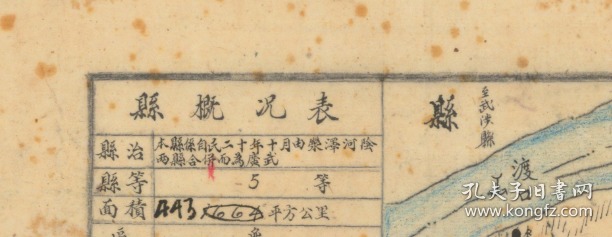 縣概况表
縣治
本縣係自民二十年十月由滎澤河陰
两縣合併而為廣武
縣等
5 等
面積
443 平方公里
縣
至武陟縣
渡
口
孔夫子旧书网
www.kongfz.com